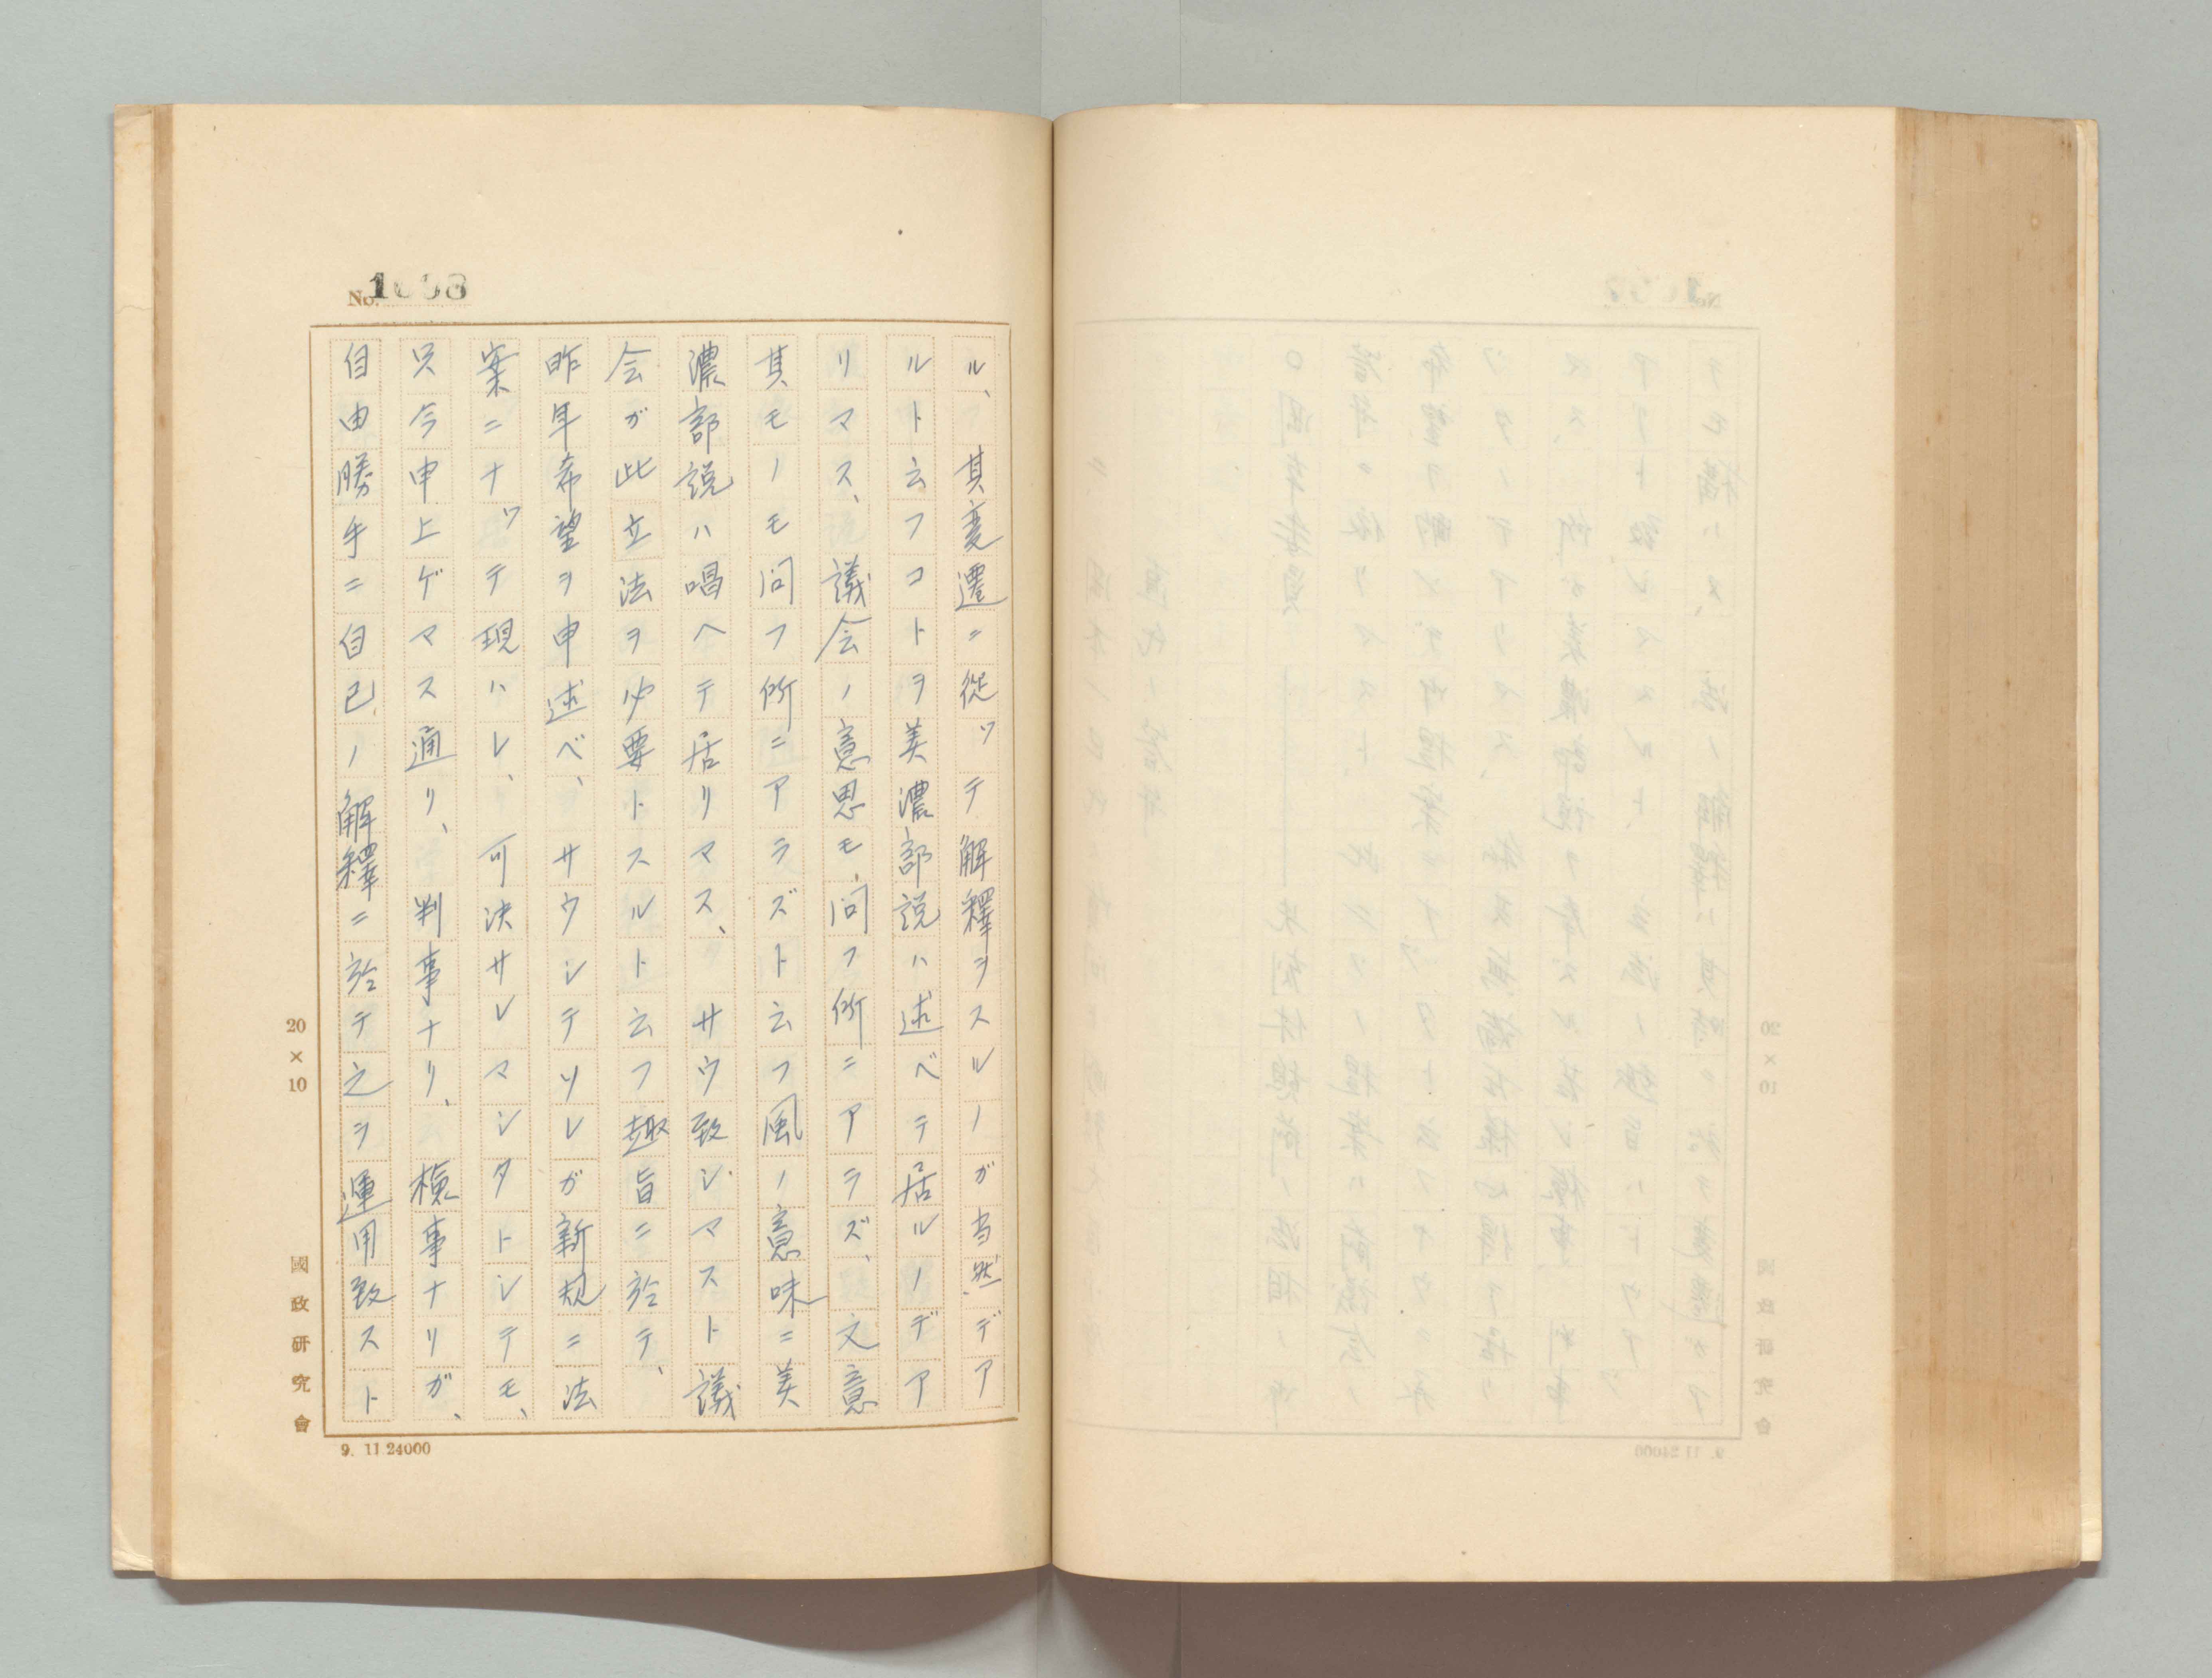 No. 1098
ル、其変遷ニ從ツテ解釋ヲスルノガ当然デア
ルト云フコトヲ美濃部説ハ述ベテ居ルノデア
リマス、議会ノ意思モ問フ所ニアラズ、文意
其モノモ問フ所ニアラズト云フ風ノ意味ニ美
濃部説ハ唱ヘテ居リマス、サウ致シマスト議
会ガ此立法ヲ必要トスルト云フ趣旨ニ於テ、
昨年希望ヲ申述ベ、サウシテソレガ新規ニ法
案ニナツテ現ハレ、可決サレマシタトシテモ、
只今申上ゲマス通リ、判事ナリ、検事ナリガ、
自由勝手ニ自己ノ解釋ニ於テ之ヲ運用致スト
20×10
國政研究會
9. 11 24000